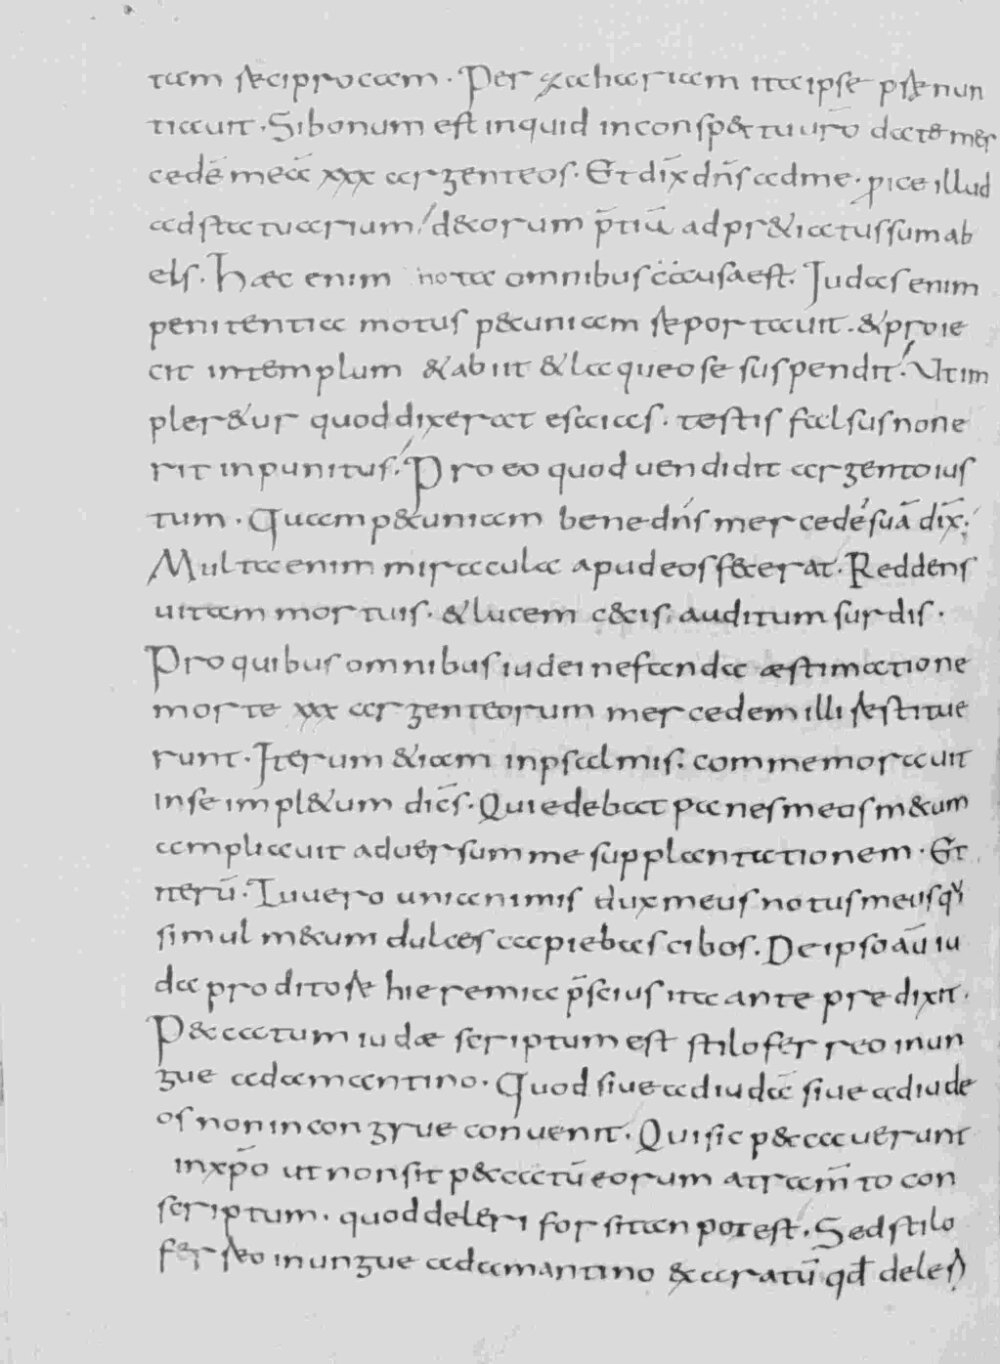 tam reciprocam. Per zachariam ita ipse prenun
tiauit. Si bonum est inquid in conspectu ur̄o date mer
cedē meā xxx argenteos. Et dix̄ dn̄s ad me. pice illud
ad statuarium! decorum p̄tiū ad pretiatus sum ab
eis. Haec enim nota omnibus c̄ausa est. Judas enim
penitentia motus pecuniam reportauit. & proie
cit in templum & abiit & laqueo se suspendit. Ut im
pler&ur quod dixerat esaias. testis falsus non e
rit inpunitus. Pro eo quod uendidit argento ius
tum. Quam pecuniam bene dn̄s mercedē suā dix̄;
Multa enim miracula apud eos fecerat. Reddens
uitam mortuis. & lucem cecis. auditum surdis.
Pro quibus omnibus iudei nefanda æstimatione
morte xxx argenteorum mercedem illi restitue
runt. Iterum &iam in psalmis. commemorauit
in se impl&um dicēs. Qui edebat panes meos m&um
ampliauit aduersum me supplantationem. Et
iterū. Tu uero unianimis dux meus notus meus q̄
simul m&cum dulces capiebas cibos. De ipso aū iu
da proditore hieremia p̄scius ita ante predixit.
Peccatum iudæ scriptum est stilo ferreo in un
gue adamantino. Quod siue ad iudā siue ad iude
os non incongrue conuenit. Qui sic peccauerunt
in xp̄o ut non sit peccatū eorum atram̄to con
scriptum. quod deleri forsitan potest. Sed stilo
ferreo in ungue adamantino & aratū qd̄ deleri